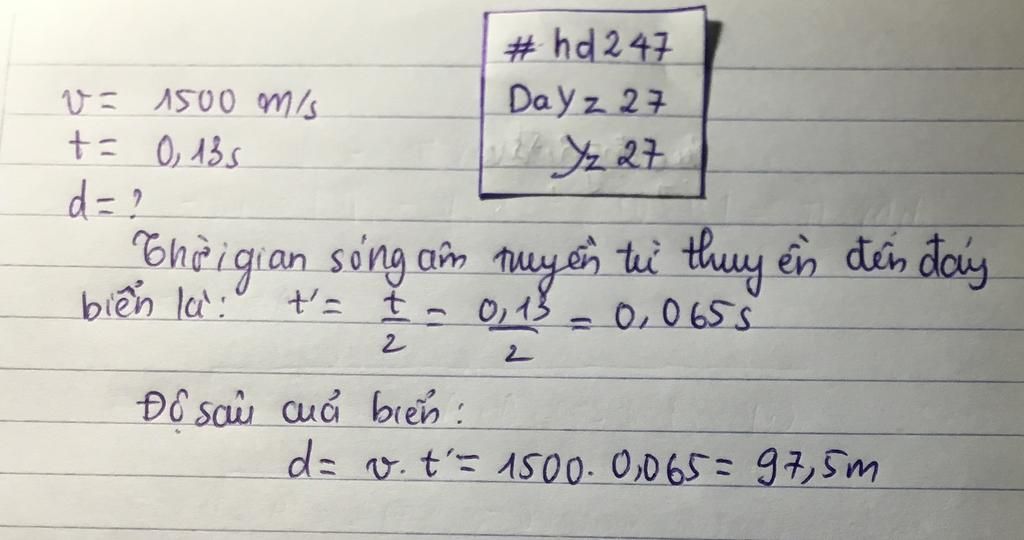 # hd247
Dayz 27
Yz 27
v = 1500 m/s
t = 0,13s
d = ?
Thời gian sóng âm truyền từ thuyền đến đáy
biển là: t' = t/2 = 0,13/2 = 0,065 s
Độ sâu của biển:
d = v. t' = 1500. 0,065 = 97,5m